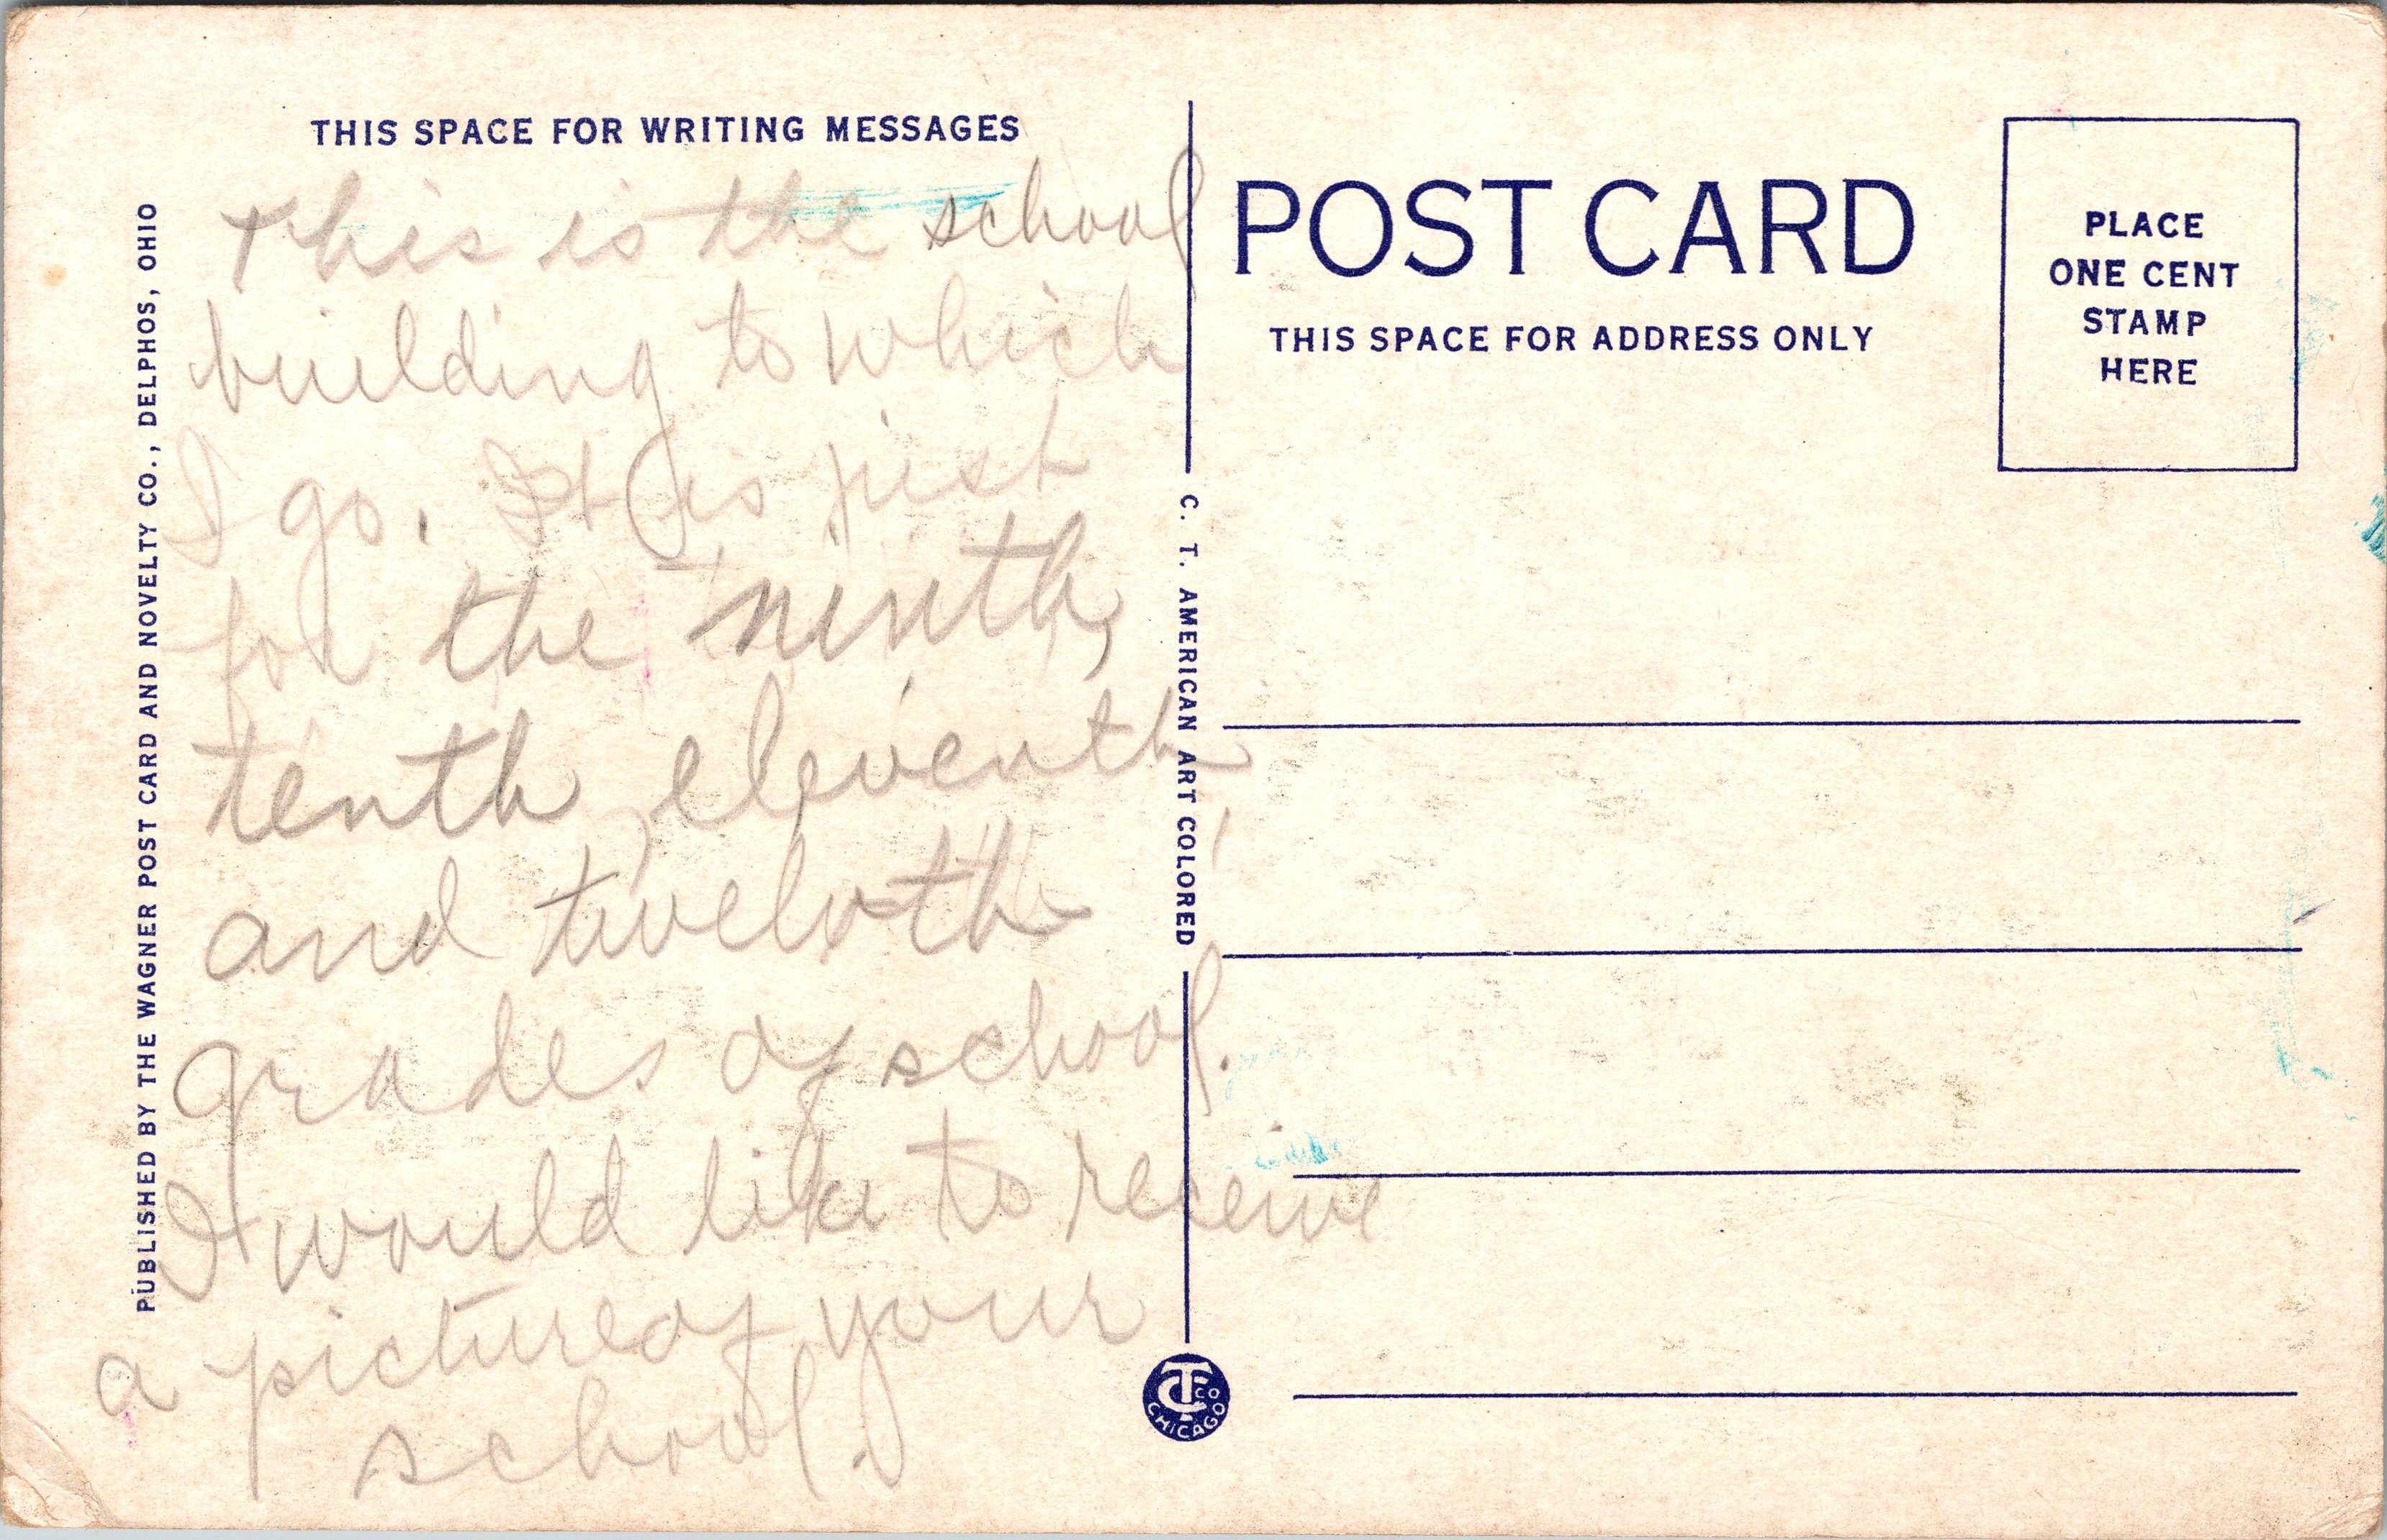 THIS SPACE FOR WRITING MESSAGES
This is the school
building to which
I go. It is just
for the ninth,
tenth, eleventh,
and twelvth
grades of school.
I would like to receive
a picture of your
school.
PUBLISHED BY THE WAGNER POST CARD AND NOVELTY CO., DELPHOS, OHIO
C. T. AMERICAN ART COLORED
CT CO
CHICAGO
POST CARD
THIS SPACE FOR ADDRESS ONLY
PLACE
ONE CENT
STAMP
HERE